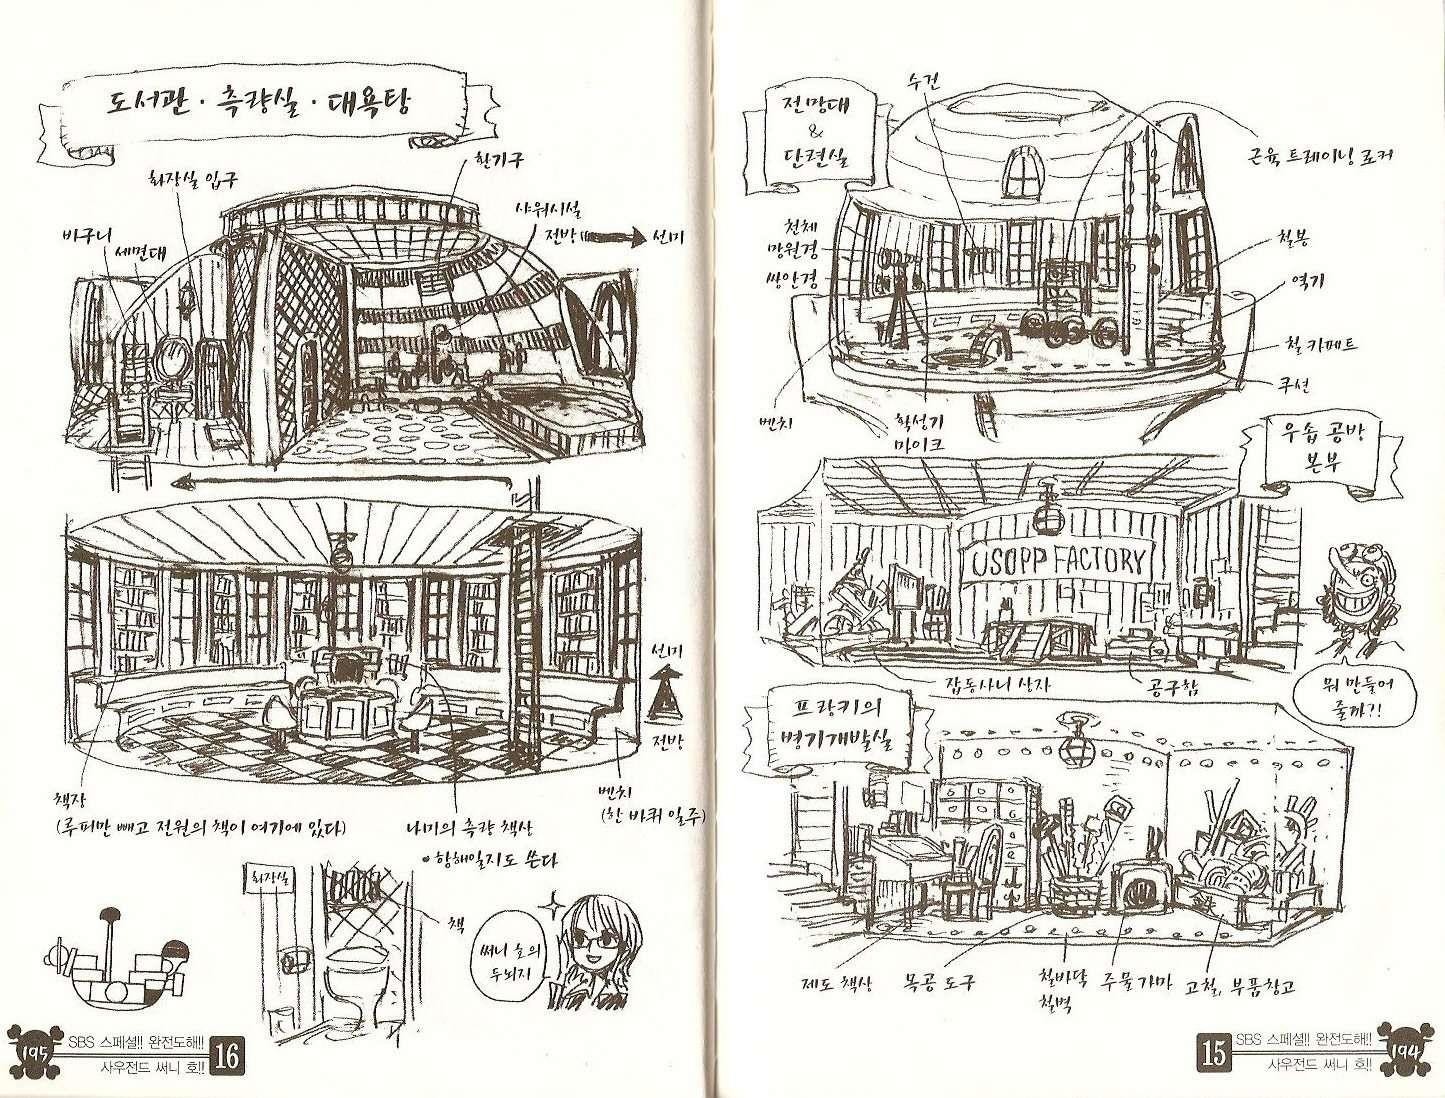 도서관 · 측량실 · 대욕탕
화장실 입구
환기구
샤워시설
바구니
세면대
전방
선미
책장
(루피만 빼고 전원의 책이 여기에 있다)
나미의 측량 책상
• 항해일지도 쓴다
벤치
(한 바퀴 일주)
선미
전방
화장실
책
써니 호의
두뇌지
195
SBS 스페셜!! 완전도해!!
사우전드 써니 호!!
16
전망대
&
단련실
수건
근육 트레이닝 로커
천체
망원경
쌍안경
철봉
역기
철 카페트
쿠션
벤치
확성기
마이크
우솝 공방
본부
USOPP FACTORY
잡동사니 상자
공구함
뭐 만들어
줄까?!
프랑키의
병기개발실
제도 책상
목공 도구
철바닥
철벽
주물가마
고철, 부품창고
15
SBS 스페셜!! 완전도해!!
사우전드 써니 호!!
194